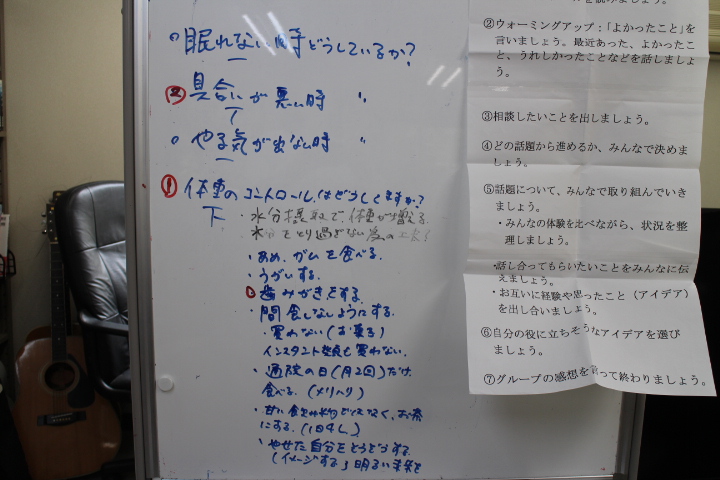 眠れない時どうしているか?
② 具合いが悪い時 〃
T
やる気が出ない時 〃
① 体重のコントロールはどうしてますか?
下 ・水分摂取で、体重が増える。
水分をとり過ぎない為の工夫!
・あめ、ガムを食べる。
・うがいする。
歯みがきをする。
・間食しないようにする。
買わない(お菓子)
インスタント麺も買わない。
・通院の日(月2回)だけ
食べる。(メリハリ)
・甘い でなく、お茶
にする。(1日4L)
・やせた自分を する。
(イメージする)明るい未来を
を読みましょう。
②ウォーミングアップ:「よかったこと」を
言いましょう。最近あった、よかったこ
と、うれしかったことなどを話しましょ
う。
③相談したいことを出しましょう。
④どの話題から進めるか、みんなで決めま
しょう。
⑤話題について、みんなで取り組んでいき
ましょう。
・みんなの体験を比べながら、状況を整
理しましょう。
・話し合ってもらいたいことをみんなに伝
えましょう。
・お互いに経験や思ったこと(アイデア)
を出し合いましょう。
⑥自分の役に立ちそうなアイデアを選び
ましょう。
⑦グループの感想を言って終わりましょう。